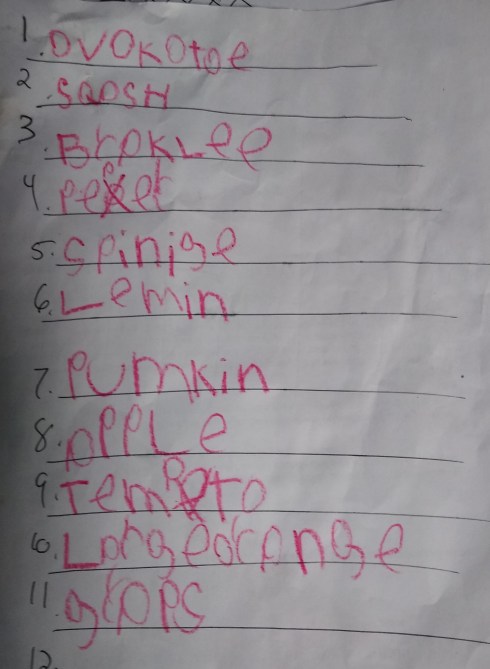 1. OVOKOtoe
2. SQOSH
3. BroKLee
4. PePer
5. Spinige
6. Lemin
7. PUmKin
8. aPPLe
9. Temato
10. Largeorange
11. graps
12.